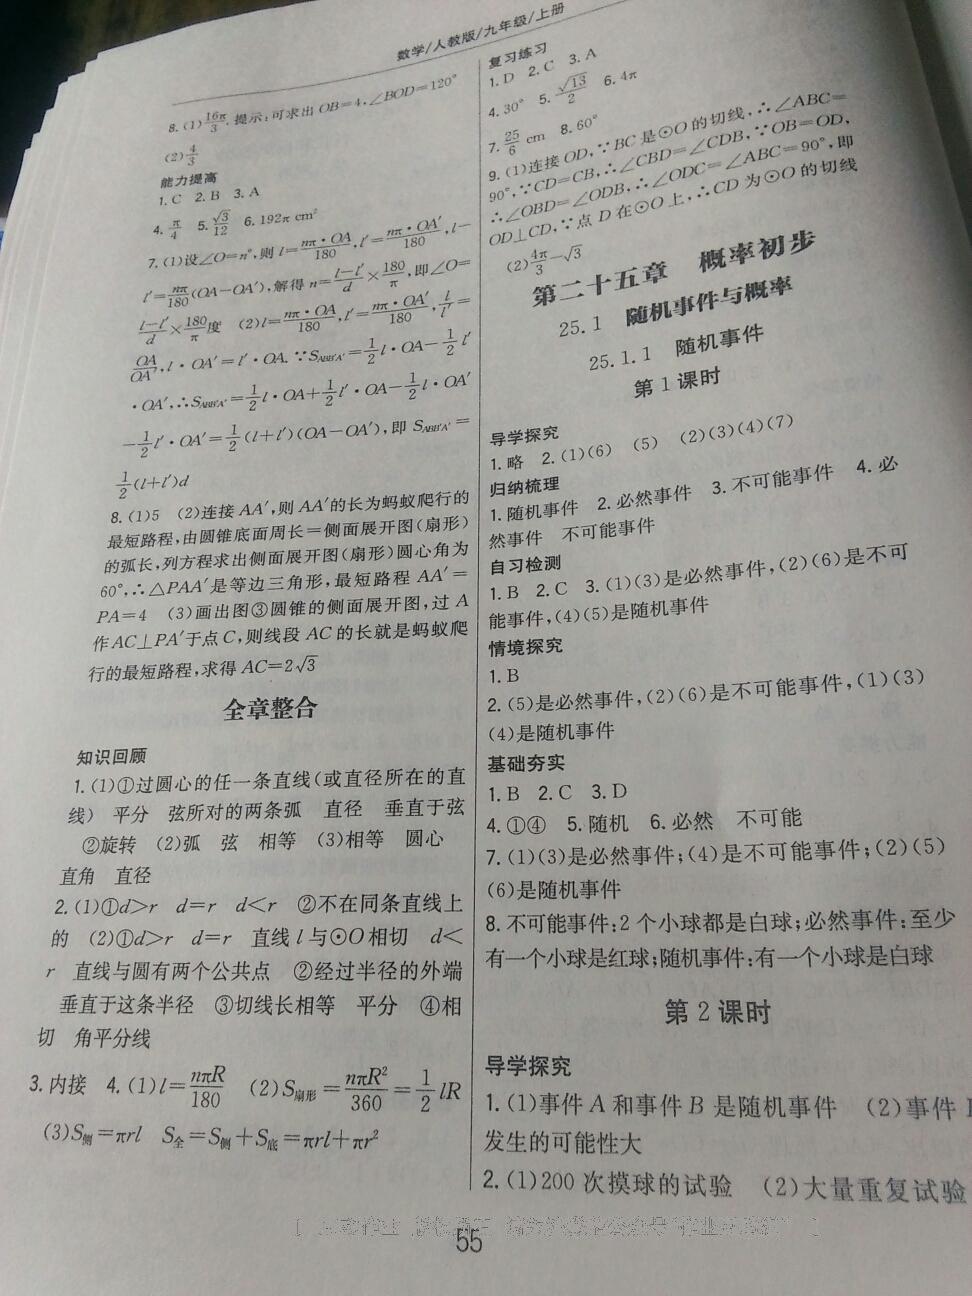 数学/人教版/九年级/上册
8.(1)16π/3.提示:可求出OB=4,∠BOD=120°
(2)4/3
能力提高
1.C 2.B 3.A
4.π/4 5.√3/12 6.192π cm²
7.(1)设∠O=n°,则l=nπ·OA/180,l′=nπ·OA′/180,l-
l′=nπ/180(OA-OA′),解得n=l-l′/d×180/π,即∠O=
l-l′/d×180/π度 (2)l=nπ·OA/180,l′=nπ·OA′/180,l/l′=
OA/OA′,l·OA′=l′·OA.∵S_ABB′A′=1/2l·OA-1/2l′
·OA′,∴S_ABB′A′=1/2l·OA+1/2l′·OA-1/2l·OA′
-1/2l′·OA′=1/2(l+l′)(OA-OA′),即S_ABB′A′=
1/2(l+l′)d
8.(1)5 (2)连接AA′,则AA′的长为蚂蚁爬行的
最短路程,由圆锥底面周长=侧面展开图(扇形)
的弧长,列方程求出侧面展开图(扇形)圆心角为
60°,∴△PAA′是等边三角形,最短路程AA′=
PA=4 (3)画出图③圆锥的侧面展开图,过A
作AC⊥PA′于点C,则线段AC的长就是蚂蚁爬
行的最短路程,求得AC=2√3
全章整合
知识回顾
1.(1)①过圆心的任一条直线(或直径所在的直
线) 平分 弦所对的两条弧 直径 垂直于弦
②旋转 (2)弧 弦 相等 (3)相等 圆心
直角 直径
2.(1)①d>r d=r d<r ②不在同条直线上
的 (2)①d>r d=r 直线l与⊙O相切 d<
r 直线与圆有两个公共点 ②经过半径的外端
垂直于这条半径 ③切线长相等 平分 ④相
切 角平分线
3.内接 4.(1)l=nπR/180 (2)S扇形=nπR²/360=1/2lR
(3)S侧=πrl S全=S侧+S底=πrl+πr²
复习练习
1.D 2.C 3.A
4.30° 5.√13/2 6.4π
7.25/6 cm 8.60°
9.(1)连接OD,∵BC是⊙O的切线,∴∠ABC=
90°,∵CD=CB,∴∠CBD=∠CDB,∵OB=OD,
∴∠OBD=∠ODB,∴∠ODC=∠ABC=90°,即
OD⊥CD,∵点D在⊙O上,∴CD为⊙O的切线
(2)4π/3-√3
第二十五章 概率初步
25.1 随机事件与概率
25.1.1 随机事件
第1课时
导学探究
1.略 2.(1)(6) (5) (2)(3)(4)(7)
归纳梳理
1.随机事件 2.必然事件 3.不可能事件 4.必
然事件 不可能事件
自习检测
1.B 2.C 3.(1)(3)是必然事件,(2)(6)是不可
能事件,(4)(5)是随机事件
情境探究
1.B
2.(5)是必然事件,(2)(6)是不可能事件,(1)(3)
(4)是随机事件
基础夯实
1.B 2.C 3.D
4.①④ 5.随机 6.必然 不可能
7.(1)(3)是必然事件;(4)是不可能事件;(2)(5)
(6)是随机事件
8.不可能事件:2个小球都是白球;必然事件:至少
有一个小球是红球;随机事件:有一个小球是白球
第2课时
导学探究
1.(1)事件A和事件B是随机事件 (2)事件
发生的可能性大
2.(1)200次摸球的试验 (2)大量重复试验
55